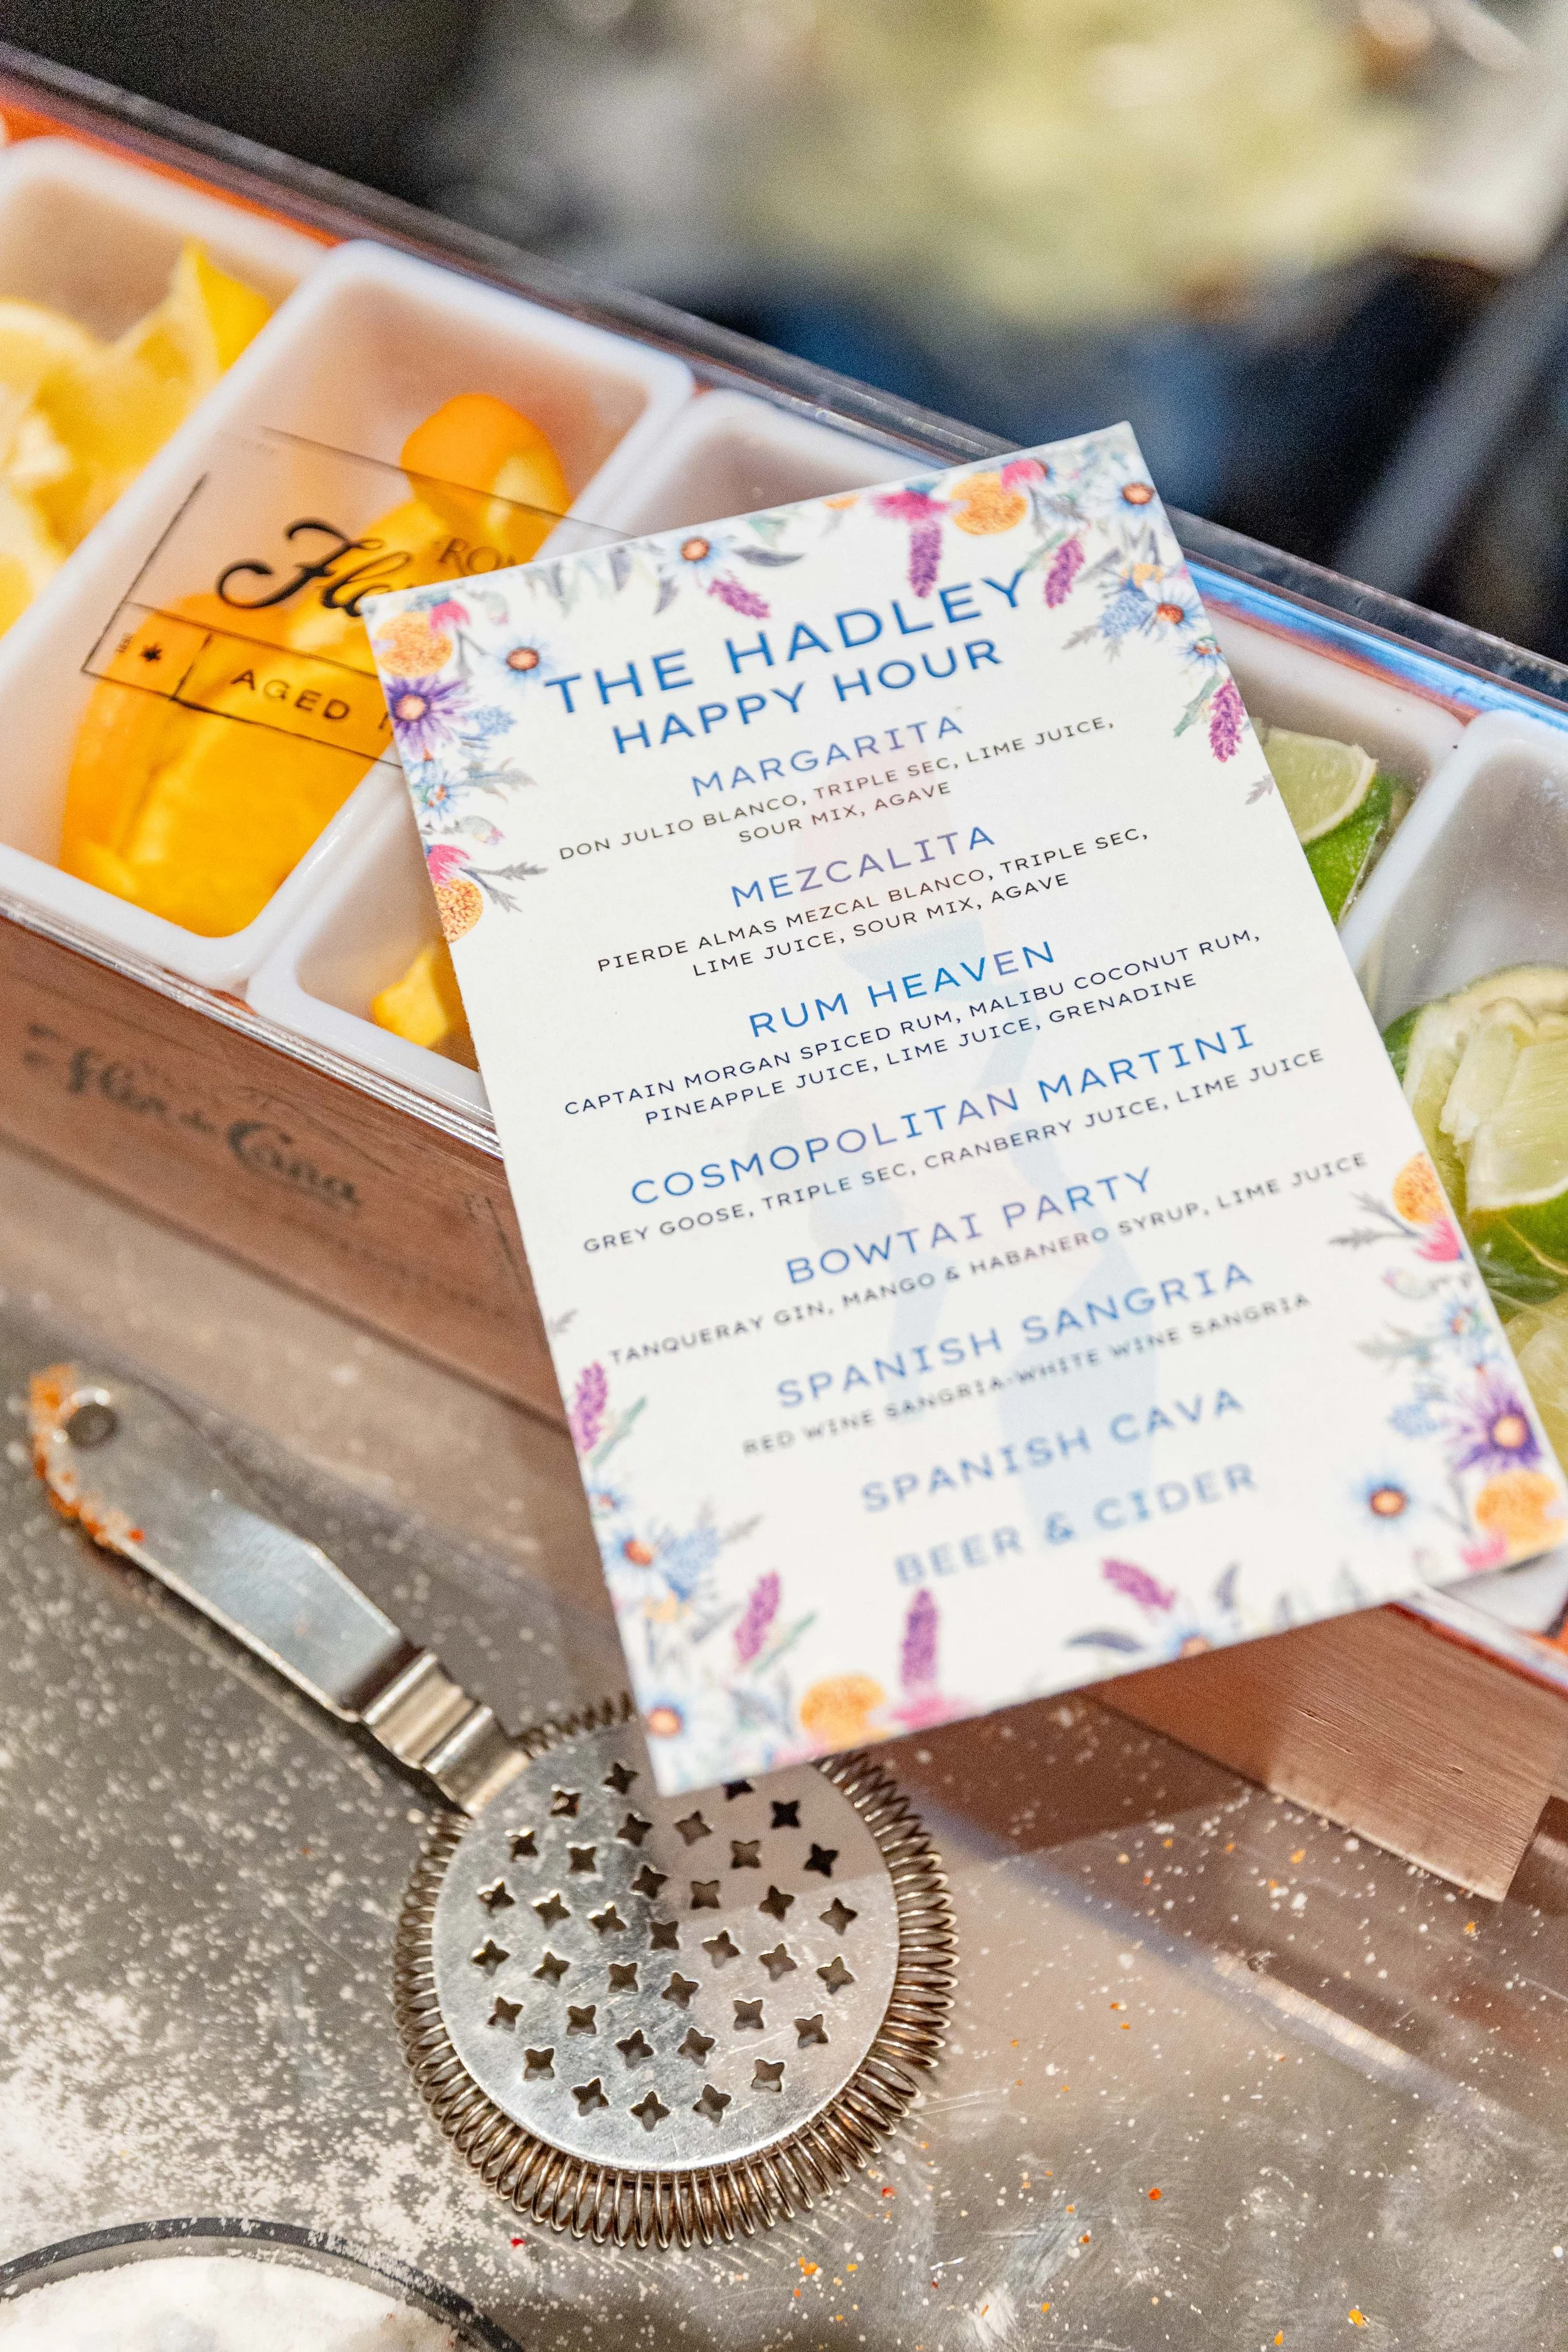 RON
Flo
AGED
THE HADLEY
HAPPY HOUR
MARGARITA
DON JULIO BLANCO, TRIPLE SEC, LIME JUICE,
SOUR MIX, AGAVE
MEZCALITA
PIERDE ALMAS MEZCAL BLANCO, TRIPLE SEC,
LIME JUICE, SOUR MIX, AGAVE
RUM HEAVEN
CAPTAIN MORGAN SPICED RUM, MALIBU COCONUT RUM,
PINEAPPLE JUICE, LIME JUICE, GRENADINE
COSMOPOLITAN MARTINI
GREY GOOSE, TRIPLE SEC, CRANBERRY JUICE, LIME JUICE
BOWTAI PARTY
TANQUERAY GIN, MANGO & HABANERO SYRUP, LIME JUICE
SPANISH SANGRIA
RED WINE SANGRIA-WHITE WINE SANGRIA
SPANISH CAVA
BEER & CIDER
Flor de Caña